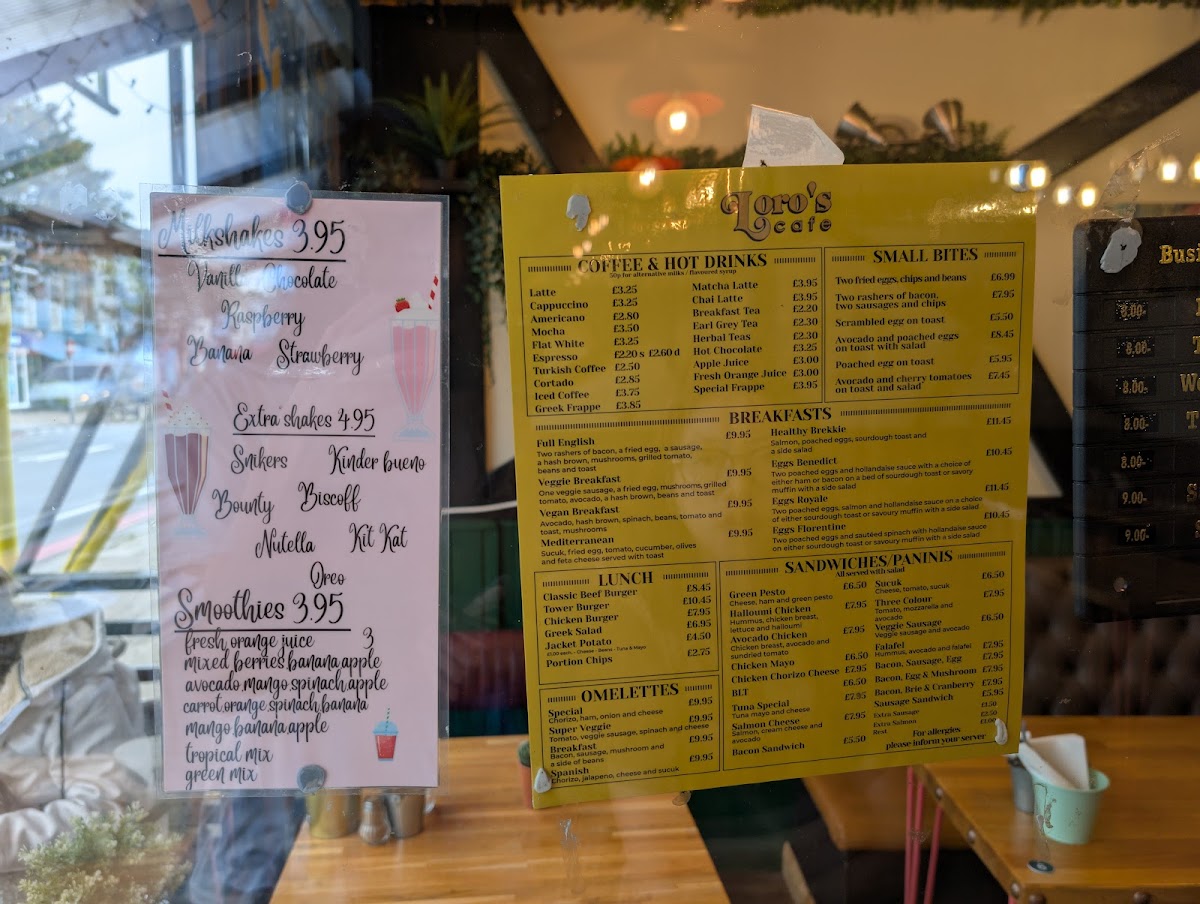 Milkshakes 3.95
Vanilla Chocolate
Raspberry
Banana Strawberry
Extra shakes 4.95
Snikers Kinder bueno
Bounty Biscoff
Nutella Kit Kat
Oreo
Smoothies 3.95
fresh orange juice 3
mixed berries.banana.apple
avocado.mango.spinach.apple
carrot.orange.spinach.banana
mango.banana.apple
tropical mix
green mix
Loro's
cafe
COFFEE & HOT DRINKS
50p for alternative milks / flavoured syrup
Latte £3.25
Cappuccino £3.25
Americano £2.80
Mocha £3.50
Flat White £3.25
Espresso £2.20 s £2.60 d
Turkish Coffee £2.50
Cortado £2.85
Iced Coffee £3.75
Greek Frappe £3.85
Matcha Latte £3.95
Chai Latte £3.95
Breakfast Tea £2.20
Earl Grey Tea £2.30
Herbal Teas £2.30
Hot Chocolate £3.25
Apple Juice £3.00
Fresh Orange Juice £3.00
Special Frappe £3.95
SMALL BITES
Two fried eggs, chips and beans £6.99
Two rashers of bacon, £7.95
two sausages and chips
Scrambled egg on toast £5.50
Avocado and poached eggs £8.45
on toast with salad
Poached egg on toast £5.95
Avocado and cherry tomatoes £7.45
on toast and salad
BREAKFASTS
Full English £9.95
Two rashers of bacon, a fried egg, a sausage,
a hash brown, mushrooms, grilled tomato,
beans and toast
Veggie Breakfast £9.95
One veggie sausage, a fried egg, mushrooms, grilled
tomato, avocado, a hash brown, beans and toast
Vegan Breakfast £9.95
Avocado, hash brown, spinach, beans, tomato and
toast, mushrooms
Mediterranean £9.95
Sucuk, fried egg, tomato, cucumber, olives
and feta cheese served with toast
Healthy Brekkie £11.45
Salmon, poached eggs, sourdough toast and
a side salad
Eggs Benedict £10.45
Two poached eggs and hollandaise sauce with a choice of
either ham or bacon on a bed of sourdough toast or savoury
muffin with a side salad
Eggs Royale £11.45
Two poached eggs, salmon and hollandaise sauce on a choice
of either sourdough toast or savoury muffin with a side salad
Eggs Florentine £10.45
Two poached eggs and sautéed spinach with hollandaise sauce
on either sourdough toast or savoury muffin with a side salad
LUNCH
Classic Beef Burger £8.45
Tower Burger £10.45
Chicken Burger £7.95
Greek Salad £6.95
Jacket Potato £4.50
Portion Chips £2.75
OMELETTES
Special £9.95
Chorizo, ham, onion and cheese
Super Veggie £9.95
Tomato, veggie sausage, spinach and cheese
Breakfast £9.95
Bacon, sausage, mushroom and
a side of beans
Spanish £9.95
Chorizo, jalapeno, cheese and sucuk
SANDWICHES/PANINIS
All served with salad
Green Pesto £6.50
Cheese, ham and green pesto
Halloumi Chicken £7.95
Hummus, chicken breast,
lettuce and halloumi
Avocado Chicken £7.95
Chicken breast, avocado and
sundried tomato
Chicken Mayo £6.50
Chicken Chorizo Cheese £7.95
BLT £6.50
Tuna Special £7.95
Tuna mayo and cheese
Salmon Cheese £7.95
Salmon, cream cheese and
avocado
Bacon Sandwich £5.50
Sucuk £6.50
Cheese, tomato, sucuk
Three Colour £7.95
Tomato, mozzarella and
avocado
Veggie Sausage £6.50
Veggie sausage and avocado
Falafel £7.95
Hummus, avocado and falafel
Bacon, Sausage, Egg £7.95
Bacon, Egg & Mushroom £7.95
Bacon, Brie & Cranberry £7.95
Sausage Sandwich £5.95
Extra Sausage £1.50
Extra Salmon £2.50
Rest £1.00
For allergies
please inform your server
Busi
8.00-
8.00- T
8.00- W
8.00- T
8.00-
9.00- S
9.00-